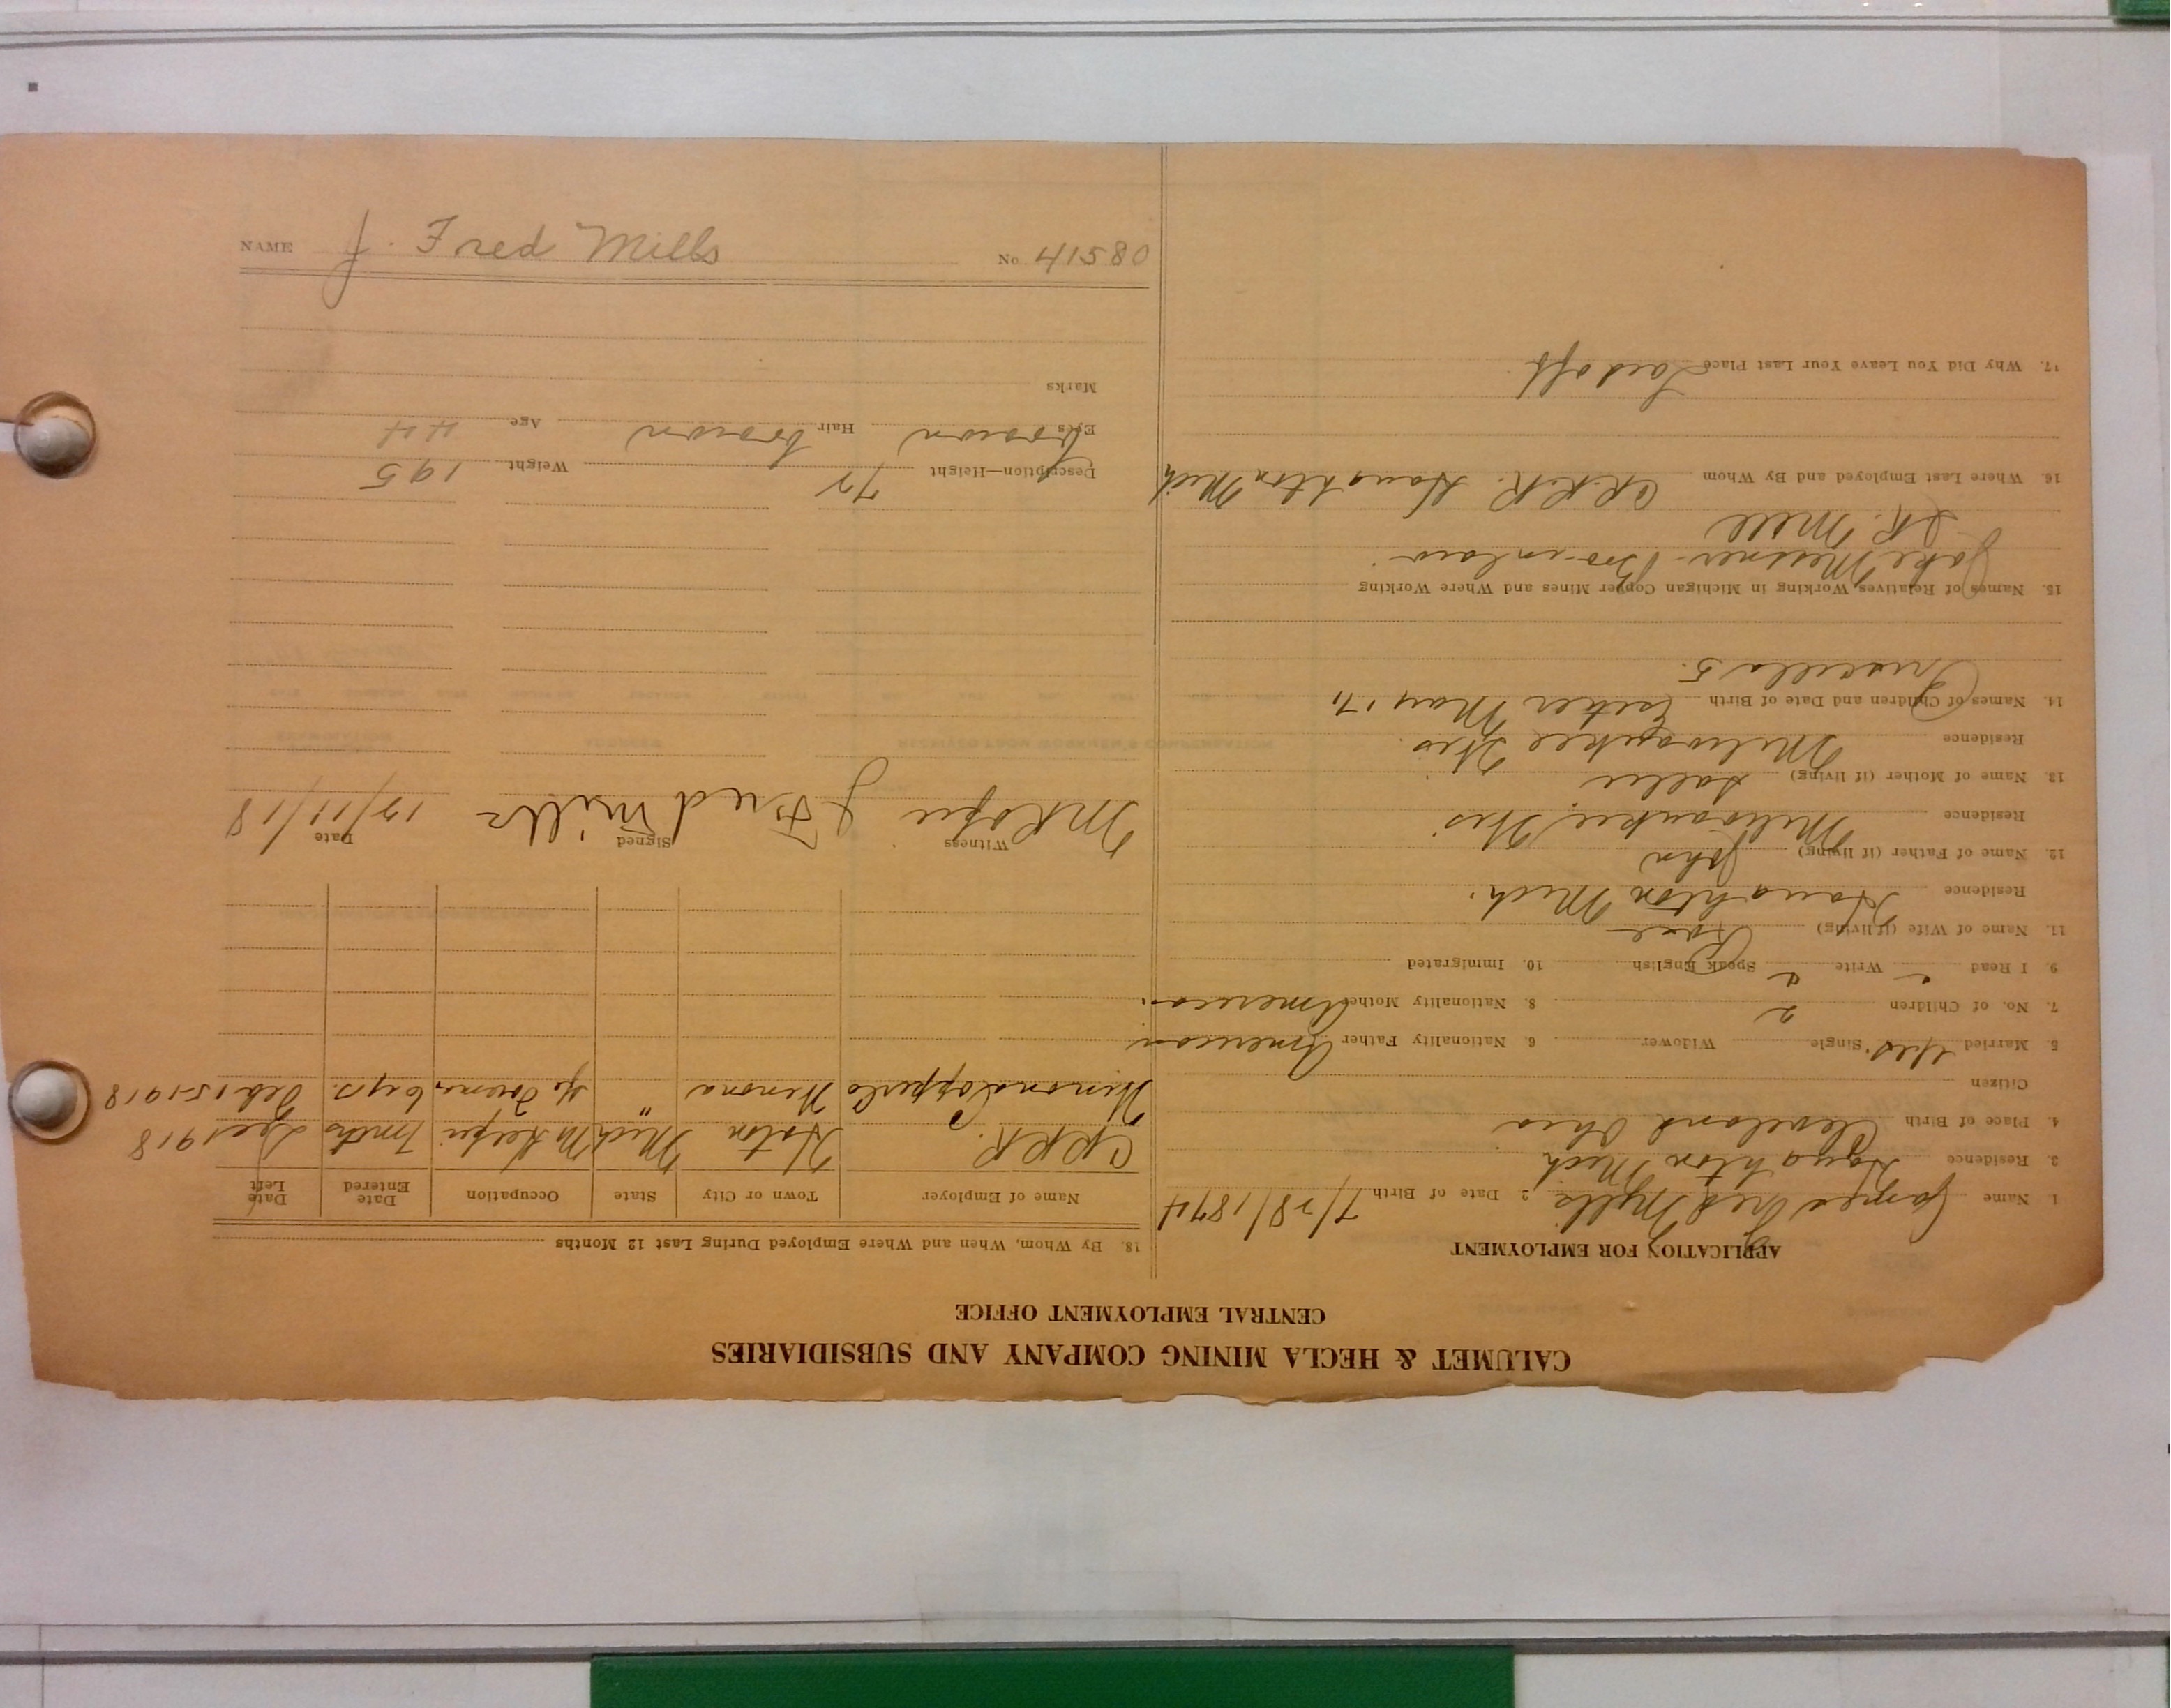 CALUMET & HECLA MINING COMPANY AND SUBSIDIARIES
CENTRAL EMPLOYMENT OFFICE
APPLICATION FOR EMPLOYMENT
1. Name James Fred Mills 2 Date of Birth 7/28/1874
3. Residence Houghton Mich
4. Place of Birth Cleveland Ohio
Citizen
5. Married Yes Single Widower 6. Nationality Father American
7. No. of Children 2 8. Nationality Mother American
9. I Read Write Speak English 10. Immigrated
11. Name of Wife (if living) Rose
Residence Houghton Mich.
12. Name of Father (if living) John
Residence Milwaukee, Wis
13. Name of Mother (if living) Sallie
Residence Milwaukee Wis.
14. Names of Children and Date of Birth Esther May 17,
Priscilla 5.
15. Names of Relatives Working in Michigan Copper Mines and Where Working
Jake Messner - Bro-in law.
I R. Mill
16. Where Last Employed and By Whom C.R.R.R. Houghton Mich
17. Why Did You Leave Your Last Place Laid off
18. By Whom, When and Where Employed During Last 12 Months
Name of Employer Town or City State Occupation Date Entered Date Left
C.R.R.R. Hoton Mich 7 mths Dec 1918
Winona Copper Co Winona " 6 yrs. Feb 15 1918
Witness Signed Date
J Fred Mills 12/11/18
Description—Height 72 Weight 195
Eyes brown Hair brown Age 44
Marks
NAME J. Fred Mills No 41580